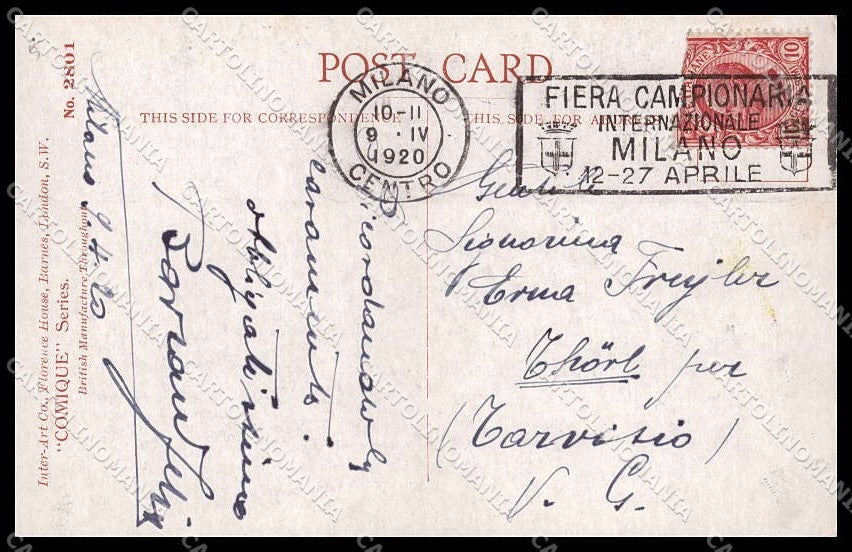 POST CARD
THIS SIDE FOR CORRESPONDENCE
THIS SIDE FOR ADDRESS
MILANO
10-11
9 · IV
1920
CENTRO
FIERA CAMPIONARIA
INTERNAZIONALE
MILANO
12-27 APRILE
10
No. 2801
Inter-Art Co., Florence House, Barnes, London, S.W.
"COMIQUE" Series.
British Manufacture Throughout
Milano 9.4.20
Ricordandoly
caramente
obbligatissimo
Gentile
Signorina
Erma Freyler
Thörl per
(Tarvisio)
V. G.
CARTOLINOMANIA